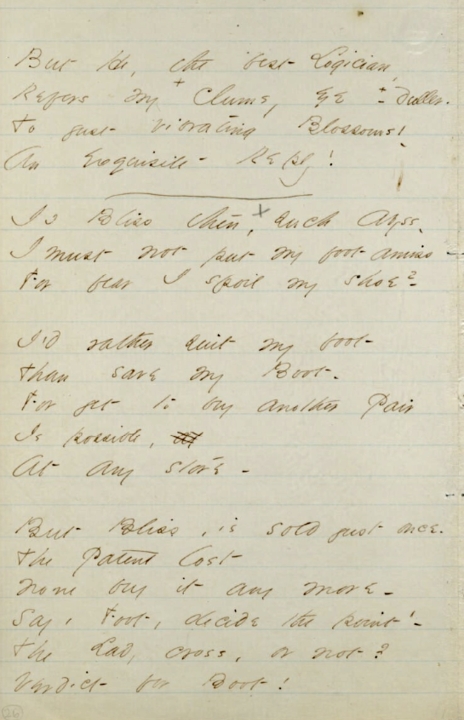 But He, the best Logician,
Refers my + Clumsy, eye + - duller.
To just vibrating Blossoms!
An Exquisite - Reply!
Is Bliss then, + such Abyss,
I must not put my foot amiss -
For fear I spoil my shoe? -
I'd rather suit my foot -
Than save my Boot -
For yet to buy another Pair
Is possible,
At any store -
But Bliss, is sold just once.
The Patent lost
None buy it any more -
Say, Foot, decide the point! -
The Lady, cross, or not?
Verdict for Boot!